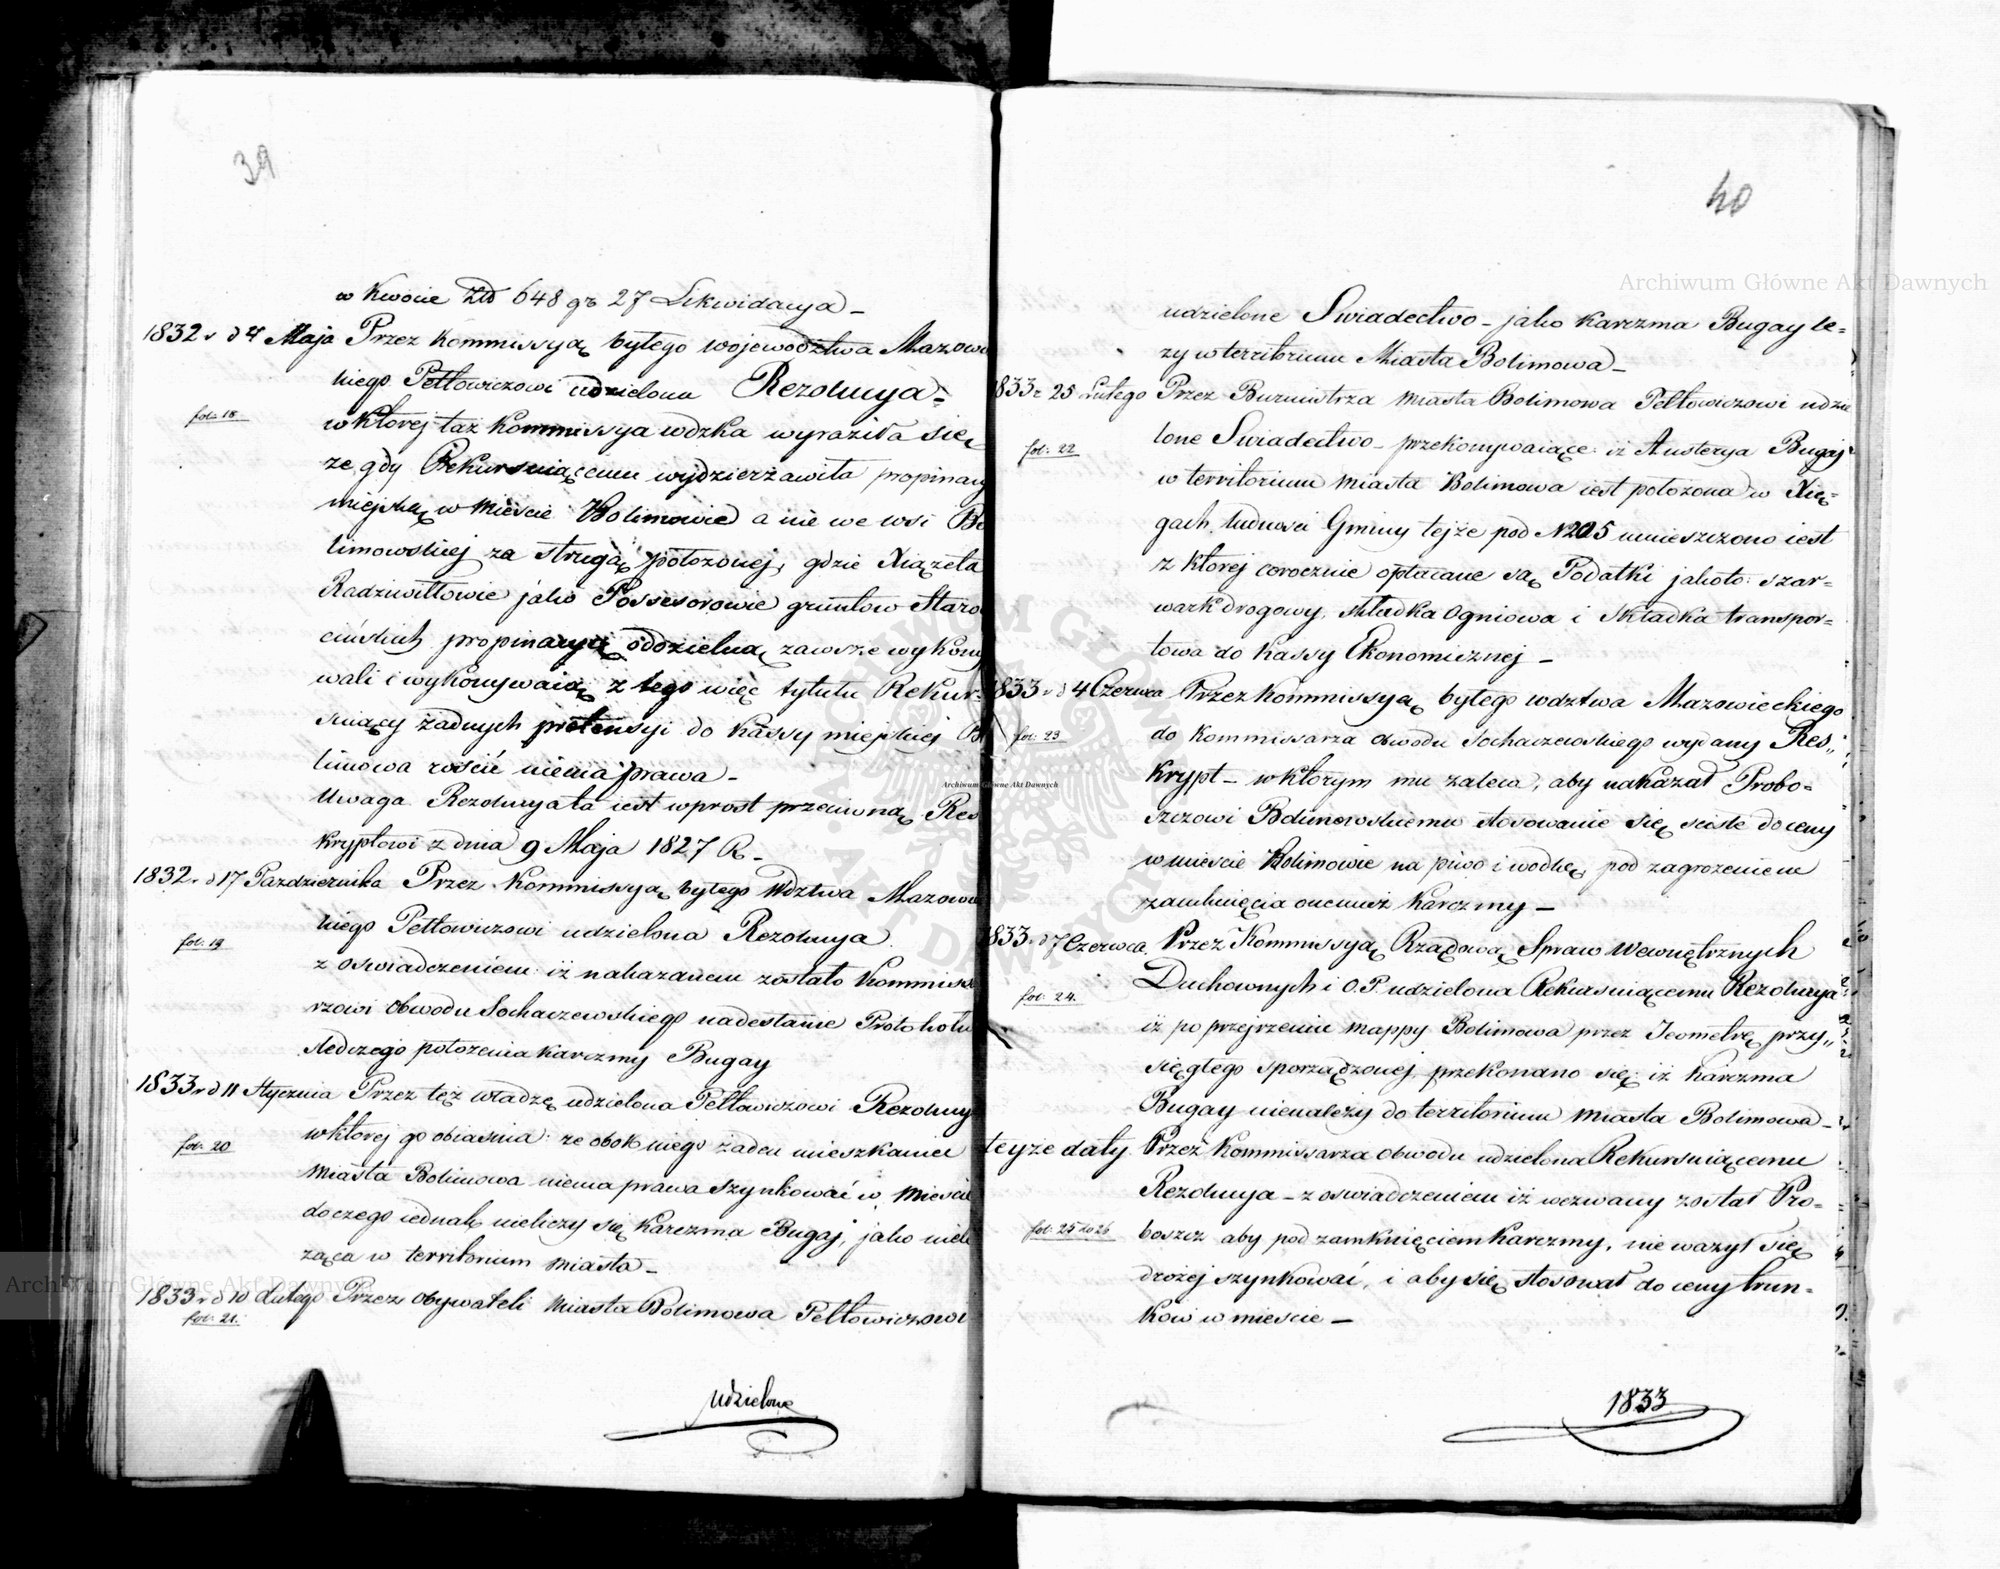 39
w kwocie Złt 648 gr 27 Likwidacya –
1832 r d 4 Maja Przez Kommissyą bytego wojewodztwa Mazow
kiego Pełtowiczowi udzielona Rezolucya –
fol: 18
w ktorej taż Kommissya wdzka wyraziła się,
że gdy Rekursuiącemu wydzierżawiła propinacy
miejską w mieście Bolimowie a nie we wsi Bo
limowskiej za strugą położonej, gdzie Xiążęta
Radziwiłłowie jako Possesorowie gruntow Staro
cińskich propinacyą oddzielną zawsze wykony
wali i wykonywaią z tego więc tytułu Rekur-
suiący żadnych pretensyi do Kassy miejskiej Bo
limowa rościć niema prawa –
Uwaga Rezolucya ta iest wprost przeciwną Res
kryptowi z dnia 9 Maja 1827 R –
1832 r d 17 Pazdziernika Przez Kommissyą bytego Wdztwa Mazowie
kiego Pełtowiczowi udzielona Rezolucya
fol: 19
z oswiadczeniem: iż nakazanem zostało Kommissa
rzowi Obwodu Sochaczewskiego nadesłanie Protokołu
sledczego położenia karczmy Bugay
1833 r d 11 Stycznia Przez też władzę udzielona Pełtowiczowi Rezolucy
fol: 20
w ktorej go obiasnia: że obok niego żaden mieszkaniec
Miasta Bolimowa niema prawa szynkować w Miescie
do czego iednak nieliczy się Karczma Bugaj, jako niele
żąca w territorium miasta –
1833 r d 10 Lutego Przez Obywateli Miasta Bolimowa Pełtowiczowi
fol: 21.
udzielone
40
udzielone Swiadectwo – jako Karczma Bugay le=
zy w territorium Miasta Bolimowa –
1833 r 25 Lutego Przez Burmistrza Miasta Bolimowa Pełtowiczowi udzie
fol: 22
lone Swiadectwo – przekonywaiące: iż Austerya Bugaj
w territorium Miasta Bolimowa iest położona w Xię=
gach ludnosci Gminy tejże pod N 205 umieszczono iest
z ktorej corocznie opłacane są Podatki jakoto: szar=
wark drogowy, składka Ogniowa i Składka transpor=
towa do Kassy Ekonomicznej –
1833 r d 4 Czerwca Przez Kommissyą bytego wdztwa Mazowieckiego
fol: 23
do Kommissarza Obwodu Sochaczewskiego wydany Res„
krypt – w ktorym mu zaleca, aby nakazał Probo=
szczowi Bolimowskiemu stosowanie się sciste do ceny
w miescie Bolimowie na piwo i wodkę, pod zagrożeniem
zamknięcia onemuż Karczmy –
1833 r d 7 Czerwca. Przez Kommissyą Rządową Spraw Wewnętrznych
fol: 24.
Duchownych i O.P. udzielona Rekursuiącemu Rezolucya
iż po przejrzeniu mappy Bolimowa przez Jeometrę przy„
sięgłego sporządzonej przekonano się: iż Karczma
Bugay nienależy do territorium Miasta Bolimowa –
teyże daty. Przez Kommissarza Obwodu udzielona Rekursuiącemu
Rezolucya – z oswiadczeniem iż wezwany został Pro=
fol: 25 do 26
boszcz aby pod zamknięciem Karczmy, nie ważył się
drożej szynkować, i aby się stosował do ceny trun=
ków w miescie –
1833
Archiwum Główne Akt Dawnych
Archiwum Główne Akt Dawnych
Archiwum Główne Akt Dawnych